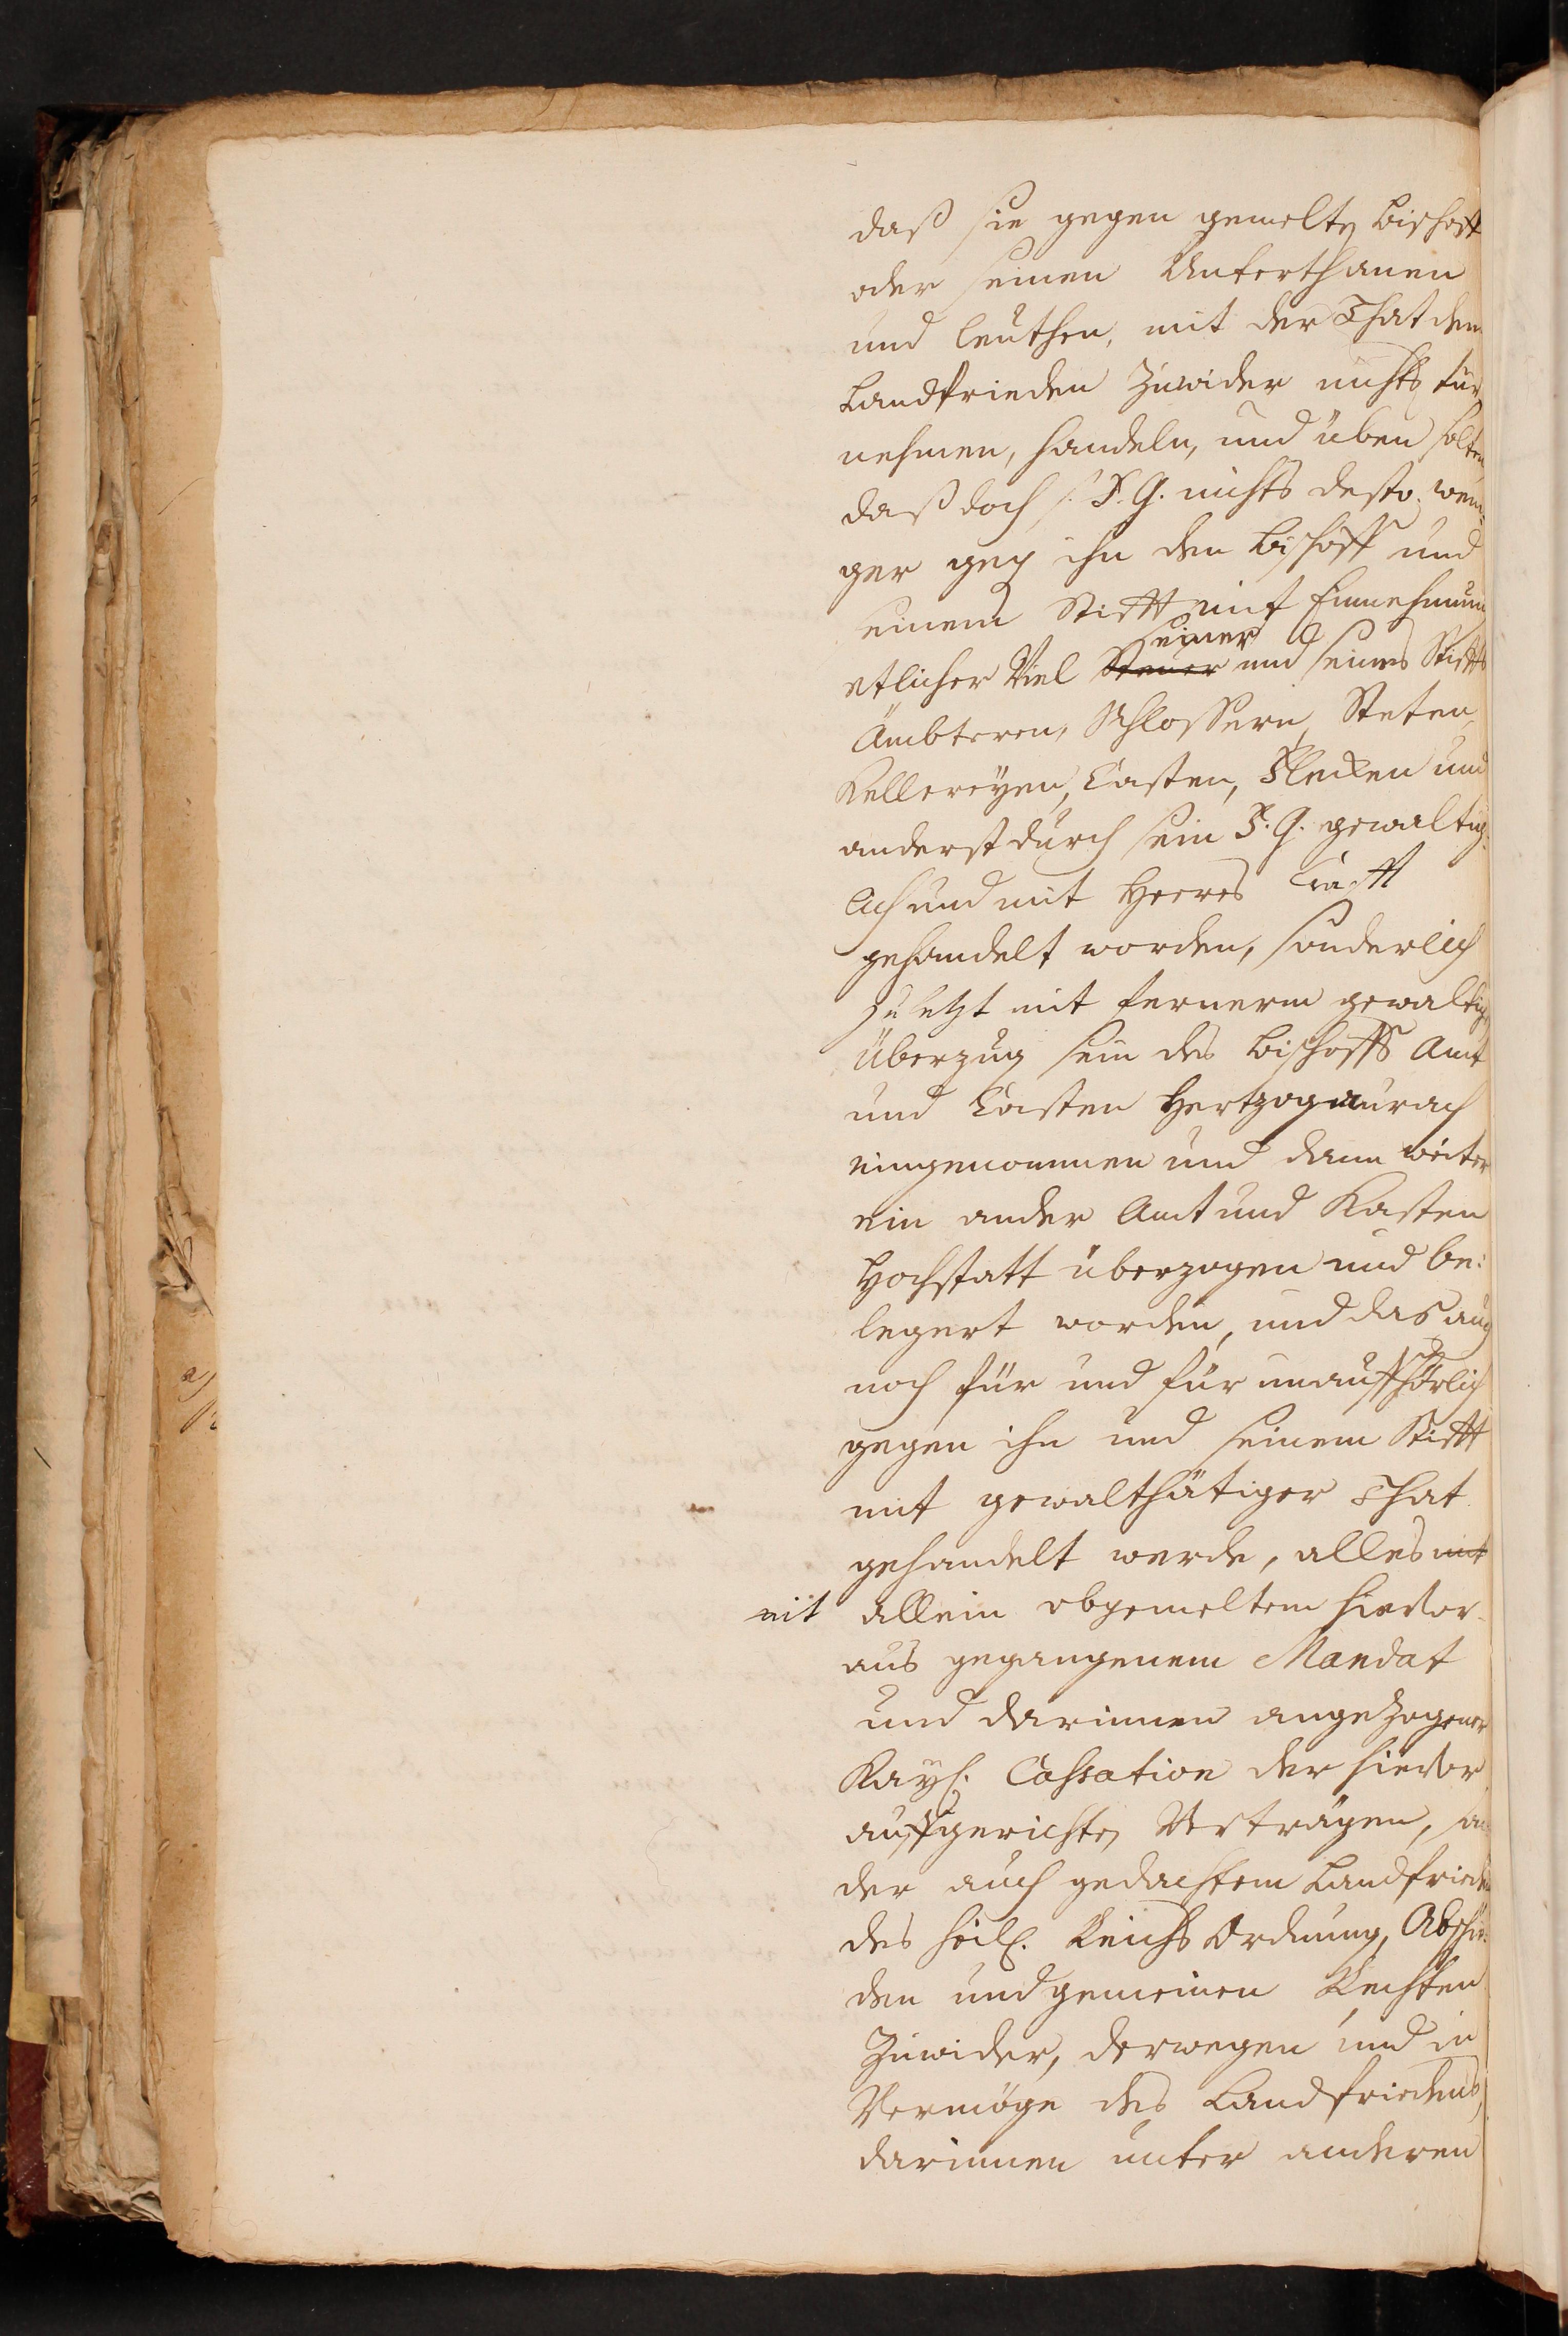 daß sie gegen gemelten Bischoff
oder seinen Unterthanen
und leuthen, mit der That dem
Landfrieden Zuwider nichts für
nehmen, handeln, und üben solten
daß doch s. F. G. nichts desto weni-
ger gegen ihn den Bischoff und
seinem Stifft mit Einnehmung
seiner
etlicher Viel Steuer und seines Stiffts
Ämbteren, Schlossern, Steten,
Kellereyen, Casten, Flecken und
anderst durch sein F. G. gewaltig-
lich und mit Heeres Crafft
gehandelt worden, sonderlich
zu letzt mit fernerm gewaltigen
Überzug sein des Bischoffs Amt
und Casten Hertzogaurach
eingenommen und dann weiter
ein ander Amt und Kasten
Hochstatt überzogen und be:
legert worden, und das auch
noch für und für unauffhörlich
gegen ihn und seinem Stifft
mit gewalthätiger That
gehandelt werde, alles mit
nit allein obgemeltem hievor
aus gegangenem Mandat
und darinnen angezogener
Kays. Cassation der hievor
auffgerichten Verträgen, son
der auch gedachtem Landfrieden
des heil. Reichs Ordnung, Abschie-
den und gemeinen Rechten
Zuwider, derwegen und in
Vermöge des Landfriedens,
darinnen unter anderen